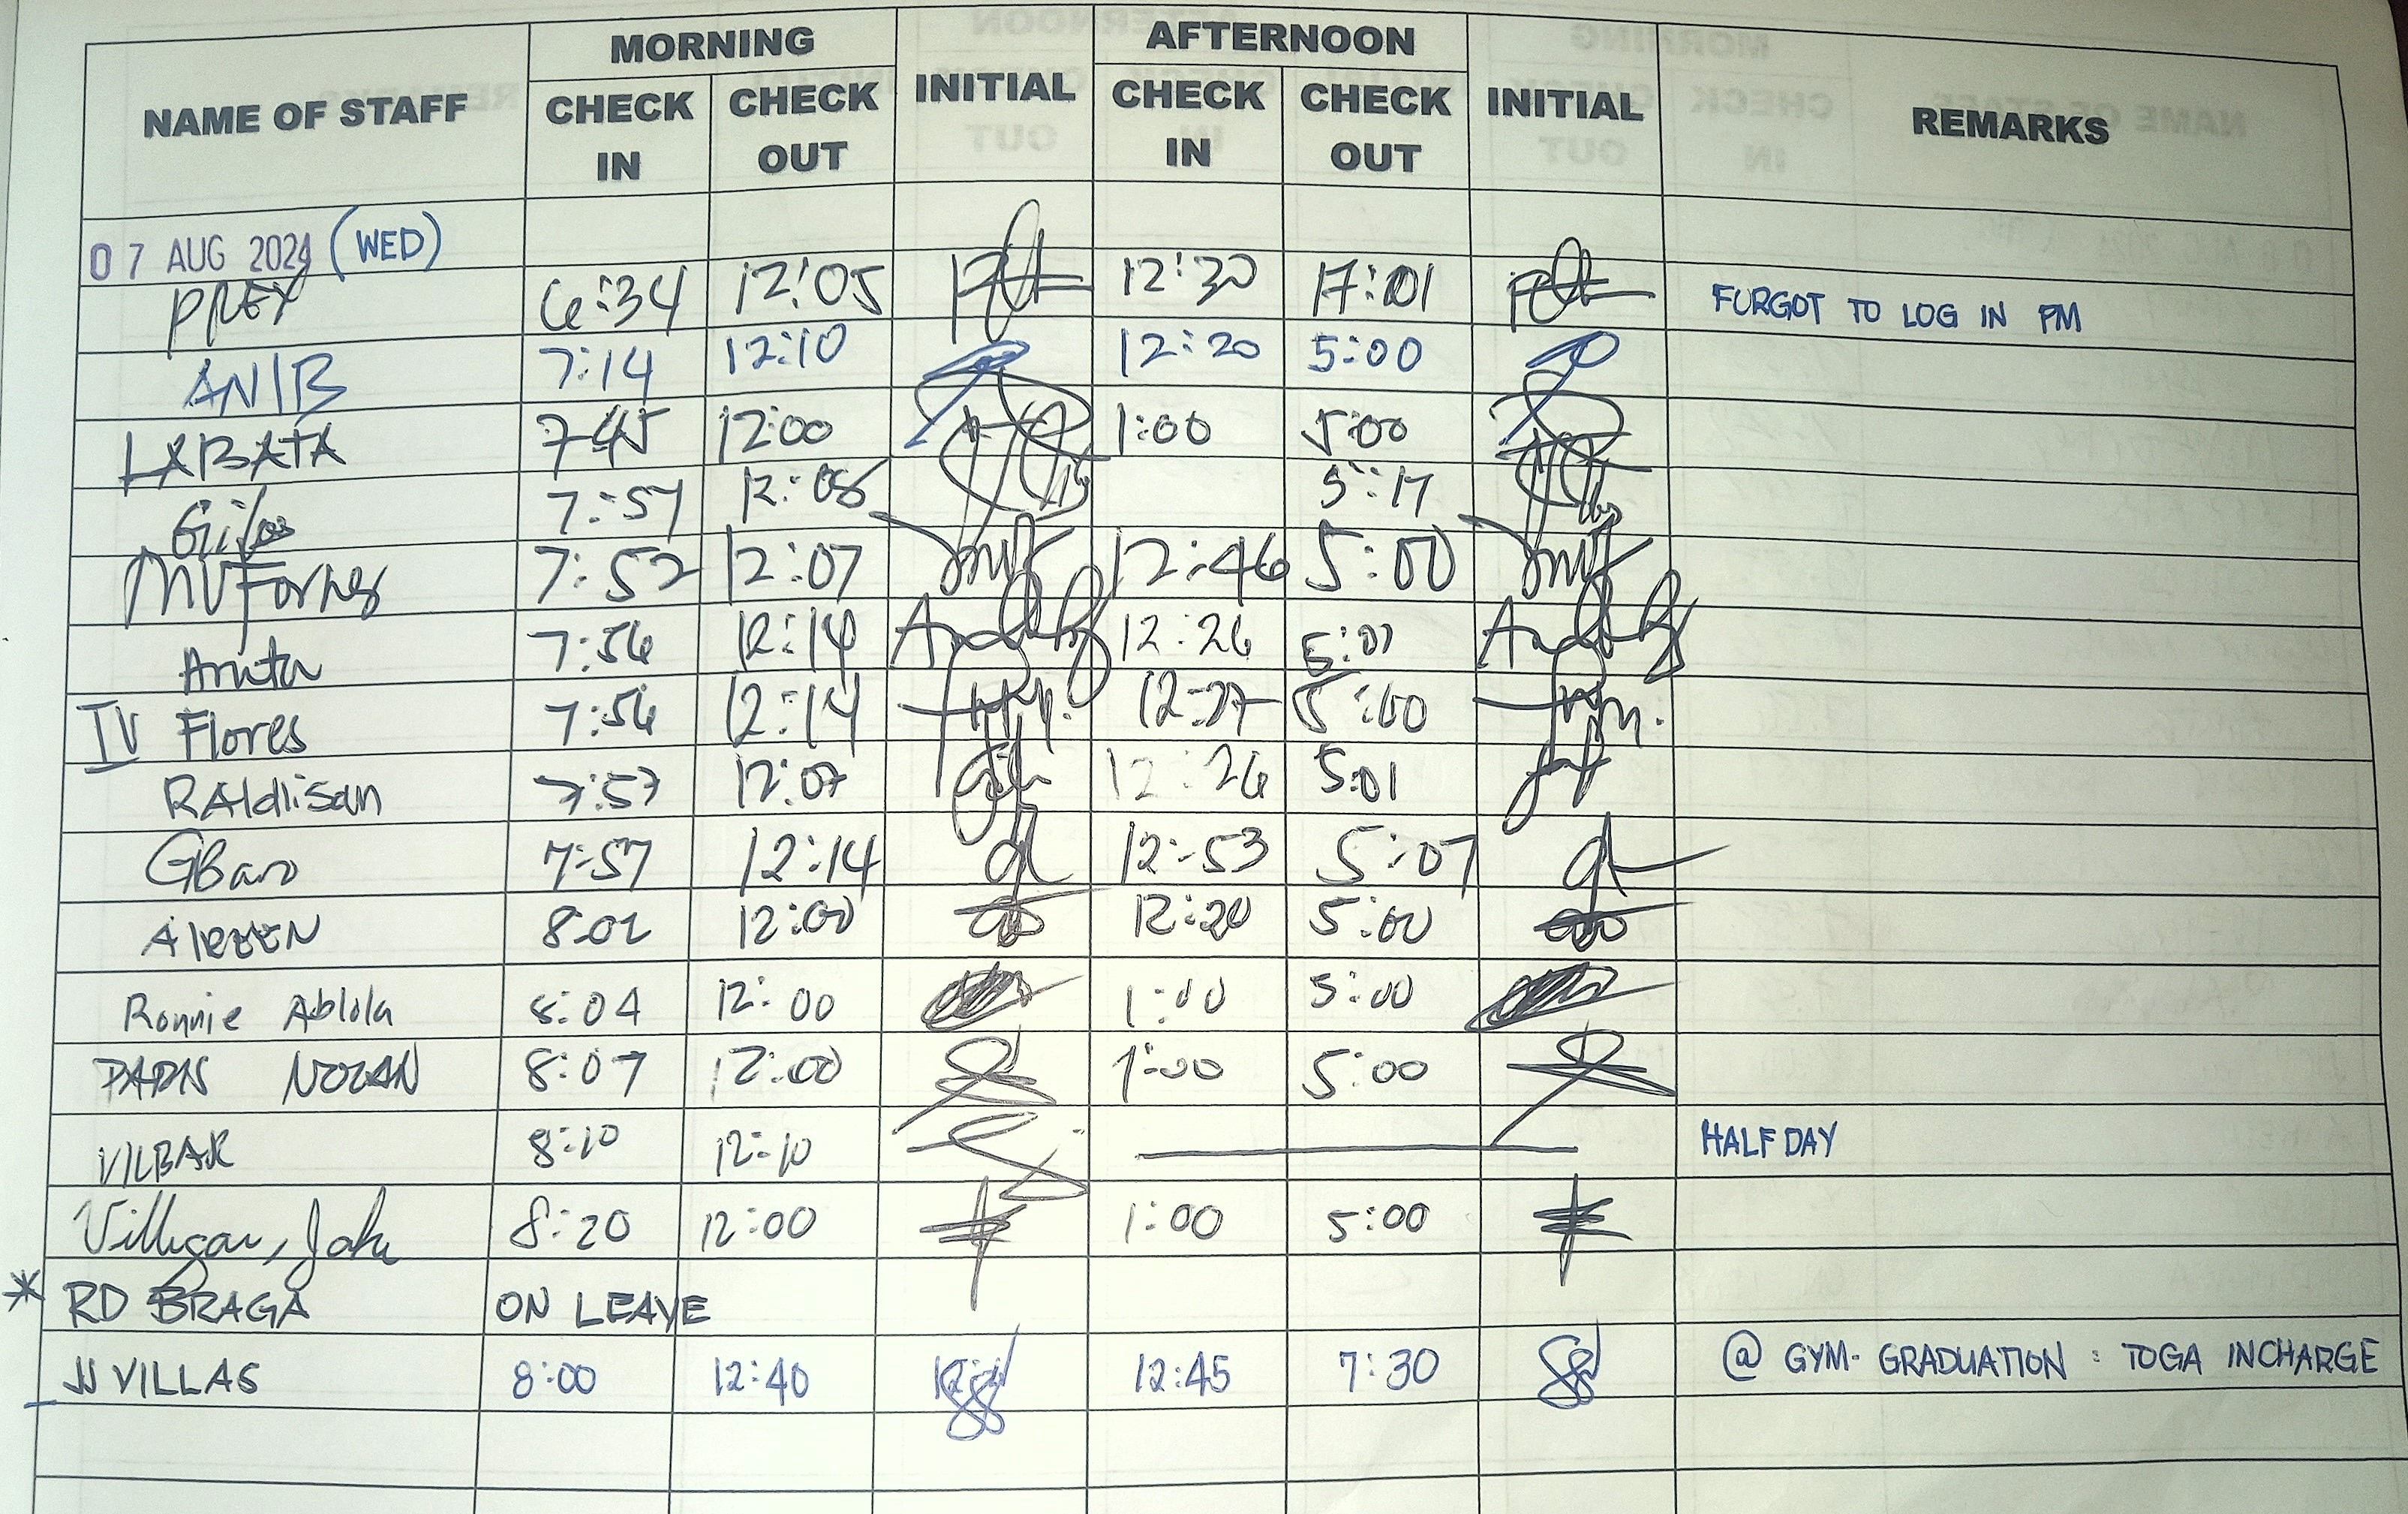 NAME OF STAFF MORNING CHECK IN CHECK OUT INITIAL AFTERNOON CHECK IN CHECK OUT INITIAL REMARKS
07 AUG 2024 (WED)
PREX 6:34 12:05 12:30 17:01 FURGOT TO LOG IN PM
ANIB 7:14 12:10 12:20 5:00
LABATA 7:45 12:00 1:00 5:00
7:57 12:08 5:17
MVFornes 7:52 12:07 12:46 5:00
Anita 7:56 12:14 12:26 5:01
IV Flores 7:56 12:14 12:27 5:00
RAldisan 7:57 12:07 12:26 5:01
GBaro 7:57 12:14 12:53 5:07
AIREEN 8:02 12:00 12:20 5:00
Ronnie Ablola 8:04 12:00 1:00 5:00
NOLAN 8:07 12:00 1:00 5:00
VILBAR 8:10 12:10 HALFDAY
8:20 12:00 1:00 5:00
* RD BRAGA ON LEAVE
JJ VILLAS 8:00 12:40 12:45 7:30 @ GYM- GRADUATION : TOGA INCHARGE